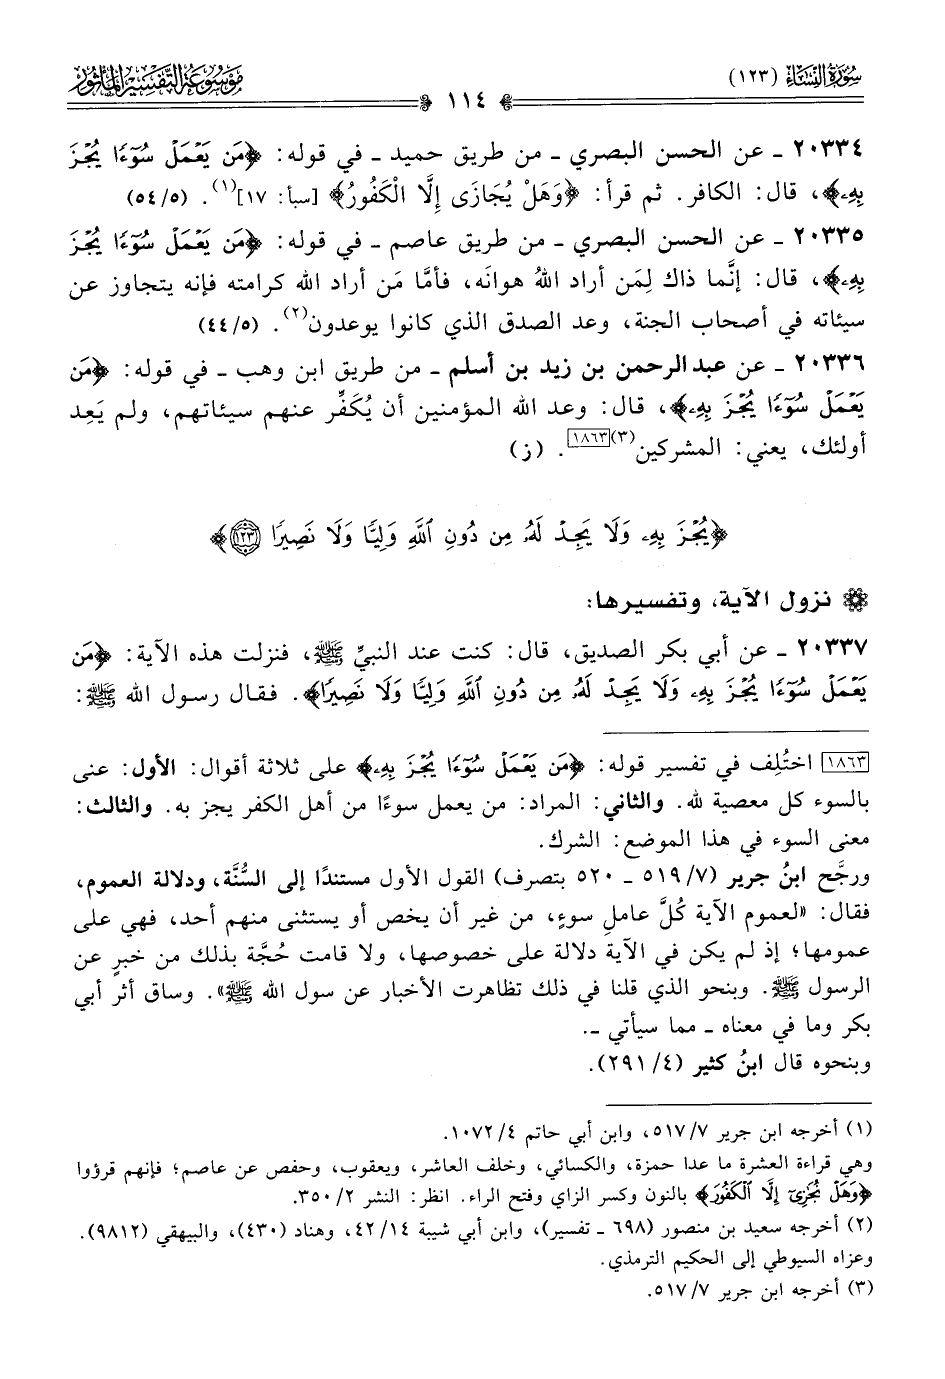 سُورَةُ النِّسَاءِ (١٢٣)
مَوْسُوعَةُ التَّفْسِيرِ المَأْثُورِ
١١٤
٢٠٣٣٤ ـ عن الحسن البصري ـ من طريق حميد ـ في قوله: ﴿مَن يَعْمَلْ سُوٓءًا يُجْزَ
بِهِۦ﴾، قال: الكافر. ثم قرأ: ﴿وَهَلْ يُجَازَى إِلَّا الْكَفُورُ﴾ [سبأ: ١٧](١). (٥٤/٥)
٢٠٣٣٥ ـ عن الحسن البصري ـ من طريق عاصم ـ في قوله: ﴿مَن يَعْمَلْ سُوٓءًا يُجْزَ
بِهِۦ﴾، قال: إنَّما ذاك لِمَن أراد اللهُ هوانَه، فأمَّا مَن أراد الله كرامته فإنه يتجاوز عن
سيئاته في أصحاب الجنة، وعد الصدق الذي كانوا يوعدون(٢). (٤٤/٥)
٢٠٣٣٦ ـ عن عبد الرحمن بن زيد بن أسلم ـ من طريق ابن وهب ـ في قوله: ﴿مَن
يَعْمَلْ سُوٓءًا يُجْزَ بِهِۦ﴾، قال: وعد الله المؤمنين أن يُكفِّر عنهم سيئاتهم، ولم يَعِد
أولئك، يعني: المشركين(٣)[١٨٦٣]. (ز)
﴿يُجْزَ بِهِۦ وَلَا يَجِدْ لَهُۥ مِن دُونِ ٱللَّهِ وَلِيًّا وَلَا نَصِيرًا ١٢٣﴾
نزول الآية، وتفسيرها:
٢٠٣٣٧ ـ عن أبي بكر الصديق، قال: كنت عند النبيِّ ﷺ، فنزلت هذه الآية: ﴿مَن
يَعْمَلْ سُوٓءًا يُجْزَ بِهِۦ وَلَا يَجِدْ لَهُۥ مِن دُونِ ٱللَّهِ وَلِيًّا وَلَا نَصِيرًا﴾. فقال رسول الله ﷺ:
[١٨٦٣] اختُلِف في تفسير قوله: ﴿مَن يَعْمَلْ سُوٓءًا يُجْزَ بِهِۦ﴾ على ثلاثة أقوال: الأول: عنى
بالسوء كل معصية لله. والثاني: المراد: من يعمل سوءًا من أهل الكفر يجز به. والثالث:
معنى السوء في هذا الموضع: الشرك.
ورجَّح ابنُ جرير (٥١٩/٧ ـ ٥٢٠ بتصرف) القول الأول مستندًا إلى السُّنَّة، ودلالة العموم،
فقال: «لعموم الآية كُلَّ عاملِ سوءٍ، من غير أن يخص أو يستثنى منهم أحد، فهي على
عمومها؛ إذ لم يكن في الآية دلالة على خصوصها، ولا قامت حُجَّة بذلك من خبرٍ عن
الرسول ﷺ. وبنحو الذي قلنا في ذلك تظاهرت الأخبار عن سول الله ﷺ». وساق أثر أبي
بكر وما في معناه ـ مما سيأتي ـ.
وبنحوه قال ابنُ كثير (٢٩١/٤).
(١) أخرجه ابن جرير ٥١٧/٧، وابن أبي حاتم ١٠٧٢/٤.
وهي قراءة العشرة ما عدا حمزة، والكسائي، وخلف العاشر، ويعقوب، وحفص عن عاصم؛ فإنهم قرؤوا
﴿وَهَلْ نُجَٰزِيٓ إِلَّا ٱلْكَفُورَ﴾ بالنون وكسر الزاي وفتح الراء. انظر: النشر ٣٥٠/٢.
(٢) أخرجه سعيد بن منصور (٦٩٨ ـ تفسير)، وابن أبي شيبة ٤٢/١٤، وهناد (٤٣٠)، والبيهقي (٩٨١٢).
وعزاه السيوطي إلى الحكيم الترمذي.
(٣) أخرجه ابن جرير ٥١٧/٧.